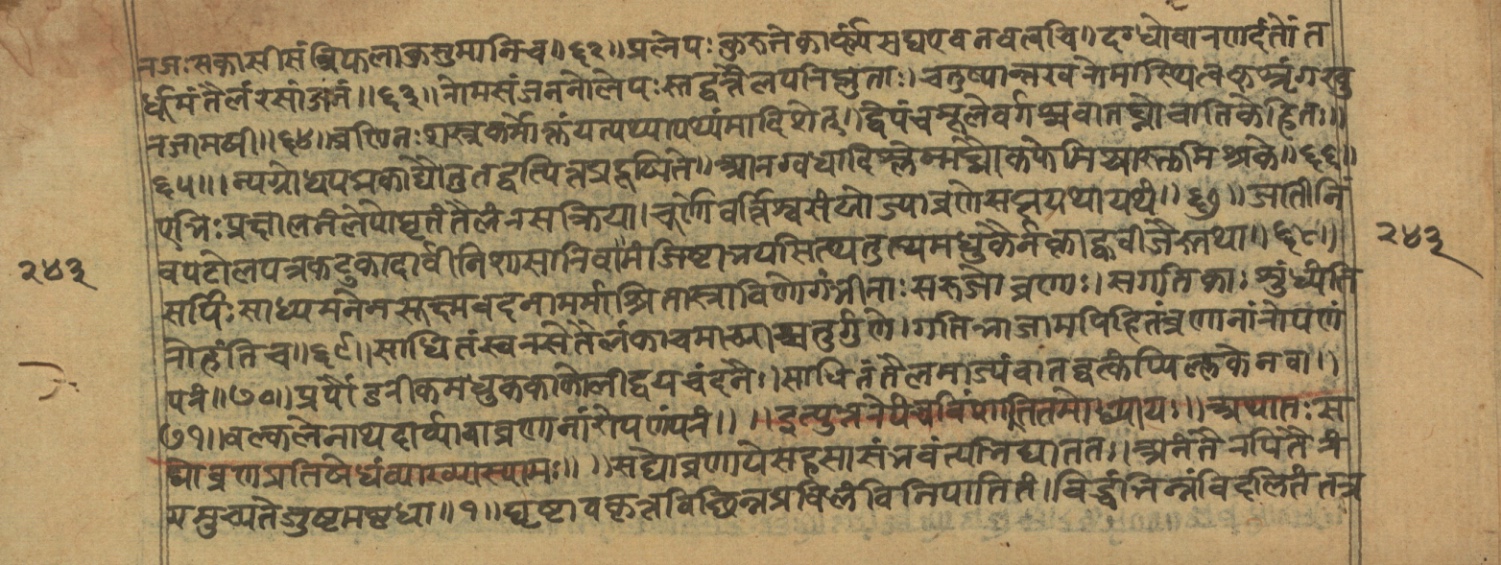 नजः सकासीसं त्रिफलाकुसुमानि च॥६२॥ प्रलेपः कुरुते कार्ष्ण्यं सद्य एव नवत्वचि॥ दग्धो वारणदंतोंत
र्धूमं तैलं रसांजनं॥६३॥ रोमसंजननो लेपः स्तद्वत्तैलपरिप्लुताः। चतुष्पान्नखरोमास्थित्वक्शृंगखु
रजा मषी॥६४॥ व्रणिनः शस्त्रकर्मोक्तं पथ्यापथ्यंमादिशेत्। द्वे पंचमूले वर्गश्च वातघ्नो वातिके हितः॥
६५॥। न्यग्रोधपद्मकाद्यौ तु तद्वत्पित्तप्रदूषिते॥ आरग्वधादिश्लेष्मघ्नौ कफे मिश्रास्तु मिश्रके॥६६॥
एभिः प्रक्षालनं लेपो घृतं तैलं रसक्रिया। चूर्णो वर्त्तिश्च संयोज्या व्रणे सप्त यथायथं॥६७॥ जातीनिं
बपटोलपत्रकटुकादार्वीनिशासारिवामंजिष्टाभयसित्थतुत्थमधुकैर्नक्ताह्वबीजैस्तथा॥६८॥
सर्पिः साध्यमनेन सूक्ष्मवदना मर्माश्रिताः स्राविणो गंभीराः सरुजो व्रणाः। सगतिकाः शुंध्यंति
रोहंति च॥६९॥ साधितं स्वरसे तैलं काचमाच्याश्चतुर्गुणे। गतिभाजामपि हितं व्रणानां रोपणं
परं॥७०॥ प्रपौंडरीकमधुककाकोलीद्वयचंदनैः। साधितं तैलमाज्यं वा तद्वत्कंप्पिल्लकेन वा॥
७१॥ वल्कलेनाथ दार्व्या वा व्रणनां रोपणं परं॥ ॥ इत्युत्तरे पंचविंशतितमोध्यायः॥ अथातः स
द्योव्रणप्रतिषेधं व्याख्यास्यामः॥ सद्योव्रणा ये सहसा संभवंत्यभिघाततः। अनंतैरपि तैरं
गमुच्यते जुष्टमष्टधा॥१॥ घृष्टावकृत्तविच्छिन्नप्रविलंविनिपातितं। विद्धं भिन्नं विदलितं तत्र
२४३
२४३